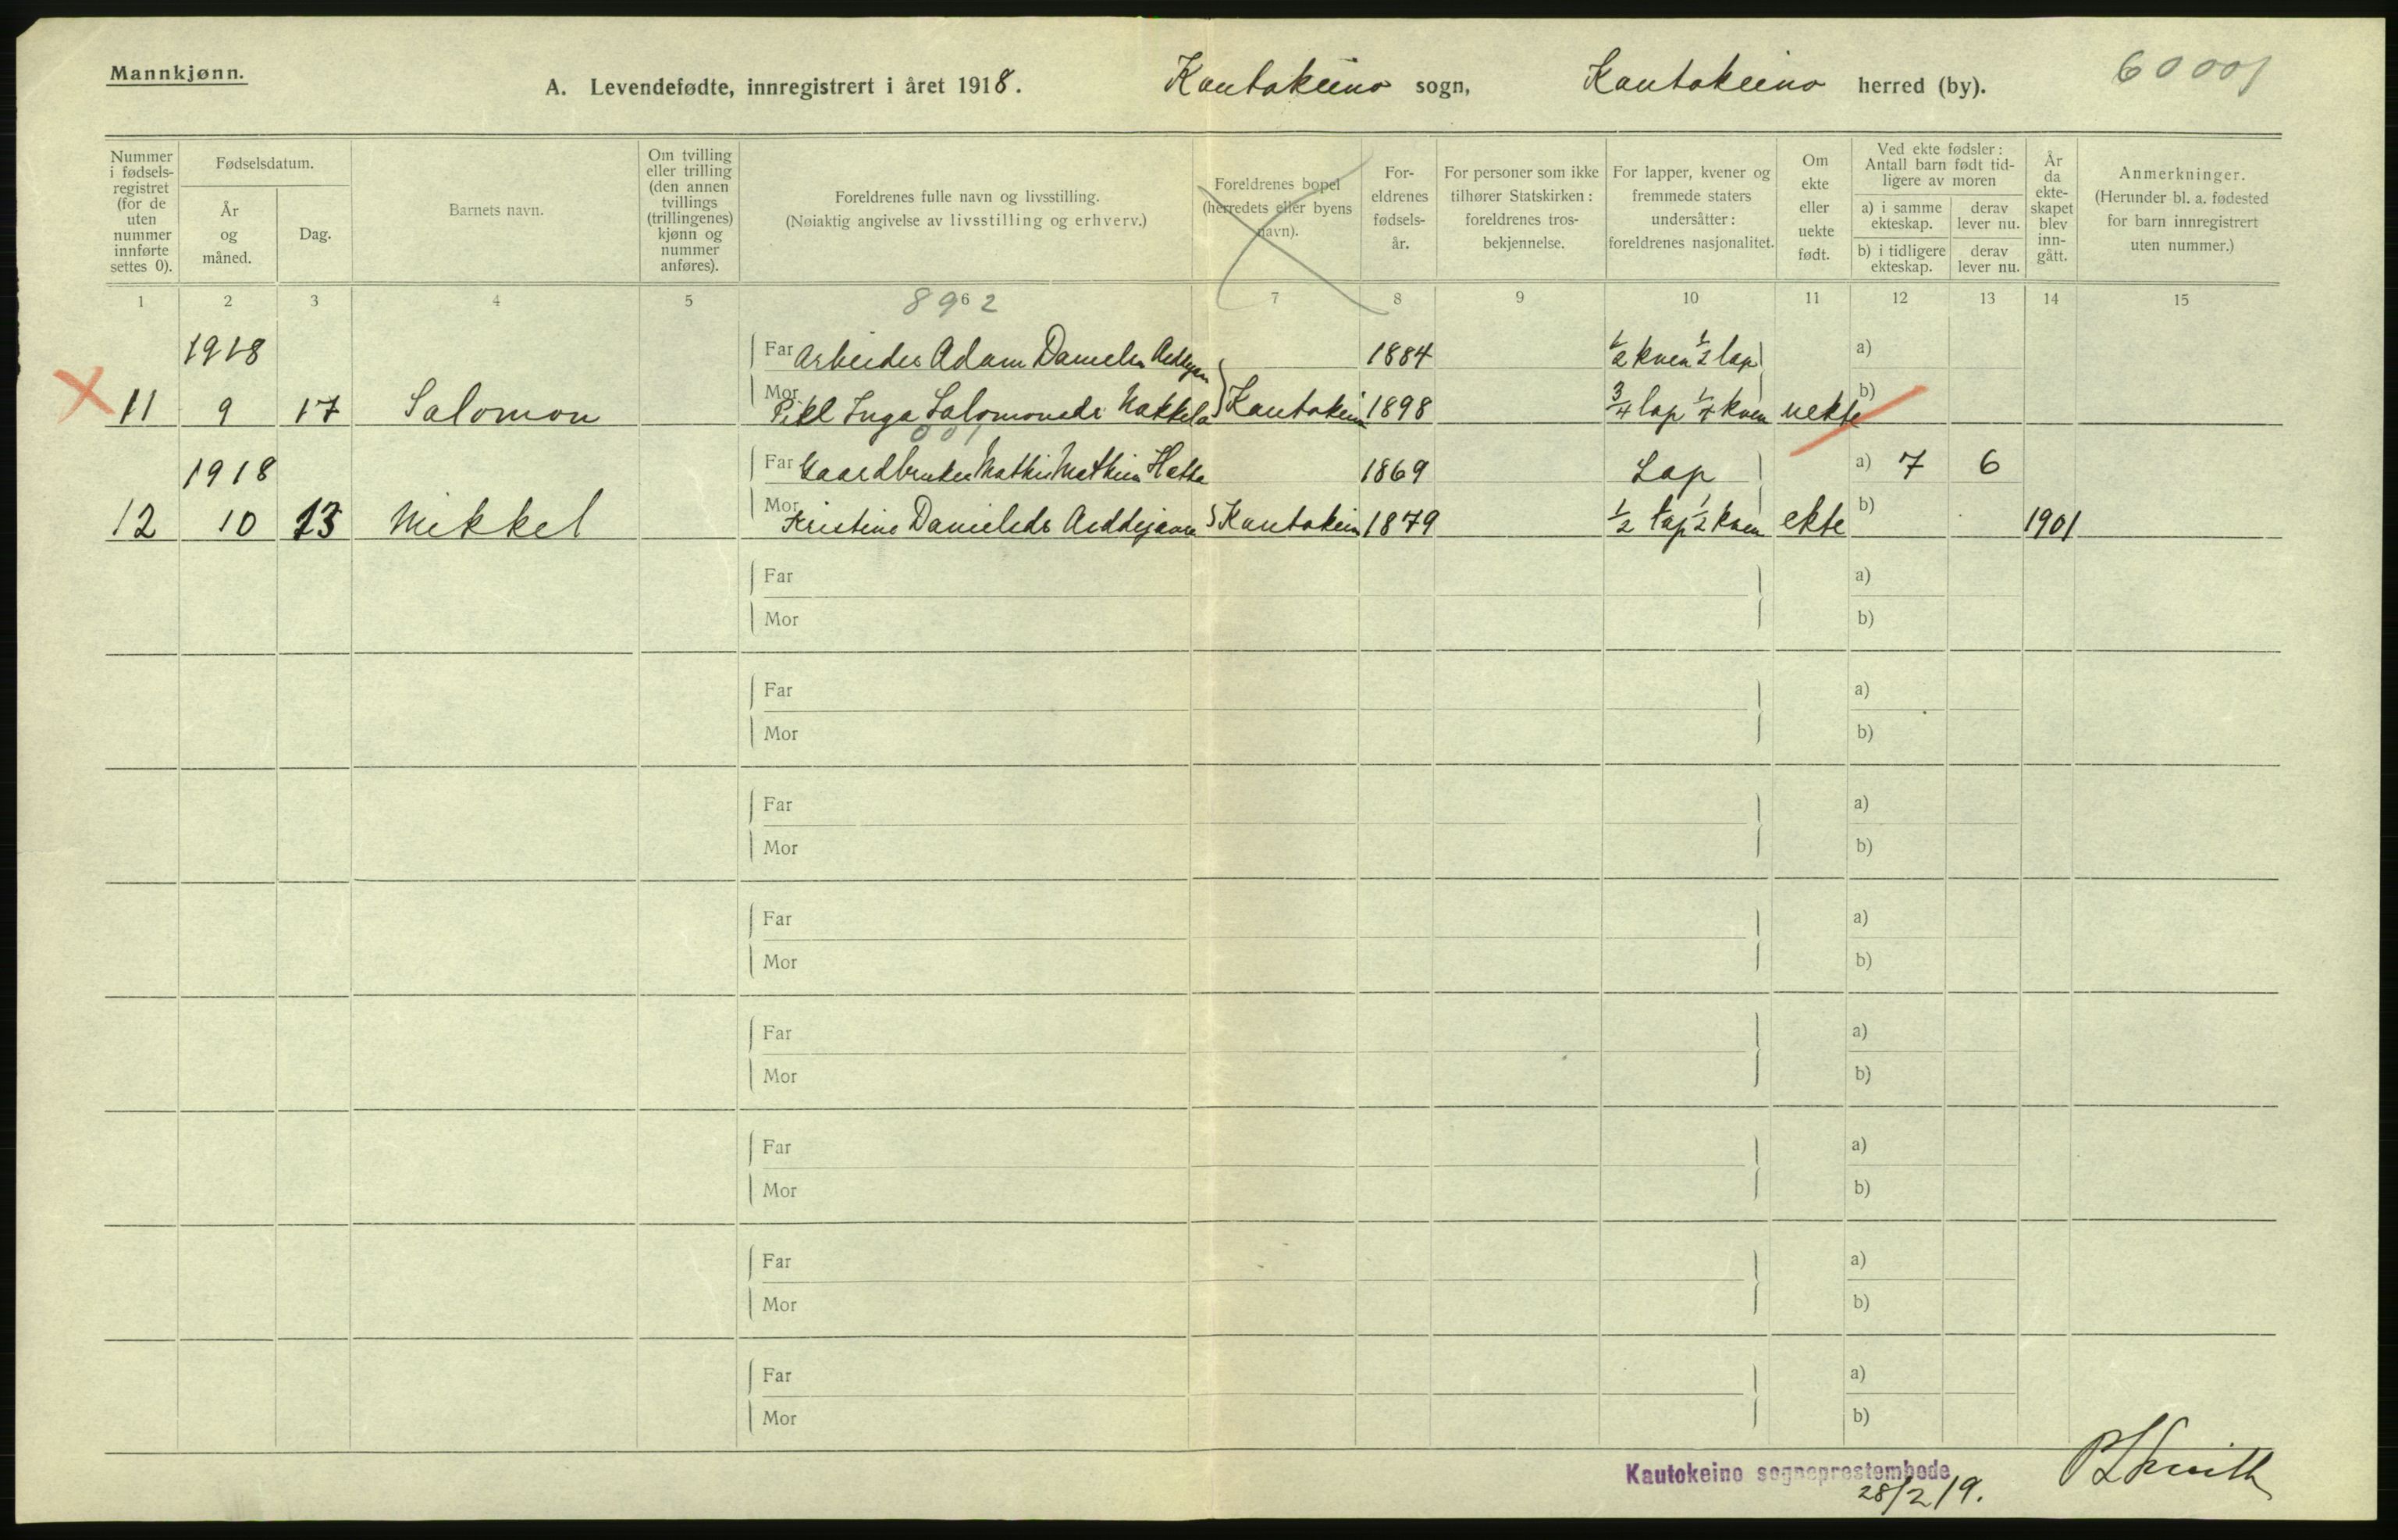 Mannkjønn.
A. Levendefødte, innregistrert i året 1918. Kautokeino sogn, Kautokeino herred (by). 60001
Nummer i fødsels-registret (for de uten nummer innførte settes 0).
Fødselsdatum.
År og måned.
Dag.
Barnets navn.
Om tvilling eller trilling (den annen tvillings (trillingenes) kjønn og nummer anføres).
Foreldrenes fulle navn og livsstilling.
(Nøiaktig angivelse av livsstilling og erhverv.)
Foreldrenes bopel (herredets eller byens navn).
For-eldrenes fødsels-år.
For personer som ikke tilhører Statskirken: foreldrenes tros-bekjennelse.
For lapper, kvener og fremmede staters undersåtter: foreldrenes nasjonalitet.
Om ekte eller uekte født.
Ved ekte fødsler: Antall barn født tid-ligere av moren
a) i samme ekteskap.
derav lever nu.
b) i tidligere ekteskap.
derav lever nu.
År da ekte-skapet blev inn-gått.
Anmerkninger.
(Herunder bl. a. fødested for barn innregistrert uten nummer.)
1 2 3 4 5 6 7 8 9 10 11 12 13 14 15
8 9 2
1918 Far Arbeider Adam Danielsen 1884 ½ kven ½ lap a)
11 9 17 Salomon Mor Pike Inga Salomonsdr Nakkela Kautokeino 1898 ¾ lap ¼ kven uekte b)
0 0 1
1918 Far Gaardbruker Mathis Mathisen Hætta 1869 Lap a) 7 6
12 10 13 Mikkel Mor Kristine Danielsdr Aiddejavre Kautokeino 1879 ½ lap ½ kven ekte b) 1901
Far a)
Mor b)
Far a)
Mor b)
Far a)
Mor b)
Far a)
Mor b)
Far a)
Mor b)
Far a)
Mor b)
Far a)
Mor b)
Far a)
Mor b)
Kautokeino sogneprestembede
28/2 19.
P L Smith